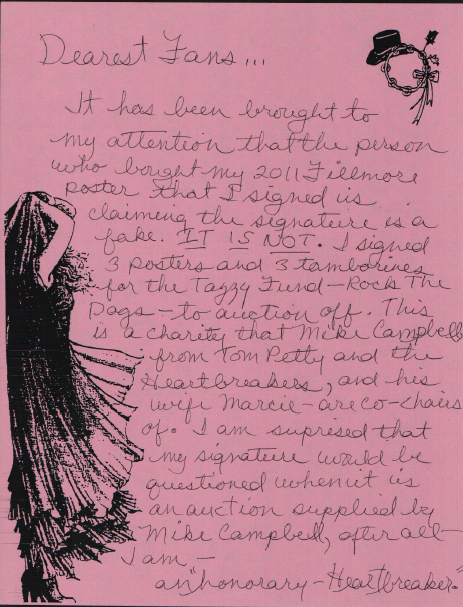 Dearest Fans...
It has been brought to
my attention that the person
who bought my 2011 Fillmore
poster that I signed is
claiming the signature is a
fake. IT IS NOT. I signed
3 posters and 3 tamborines
for the Tazzy Fund - Rock The
Dogs - to auction off. This
is a charity that Mike Campbell
from Tom Petty and the
Heartbreakers, and his
wife Marcie - are co-chairs
of. I am supresed that
my signature would be
questioned when it is
an auction supplied by
Mike Campbell, after all -
I am -
an "honorary - Heartbreaker."